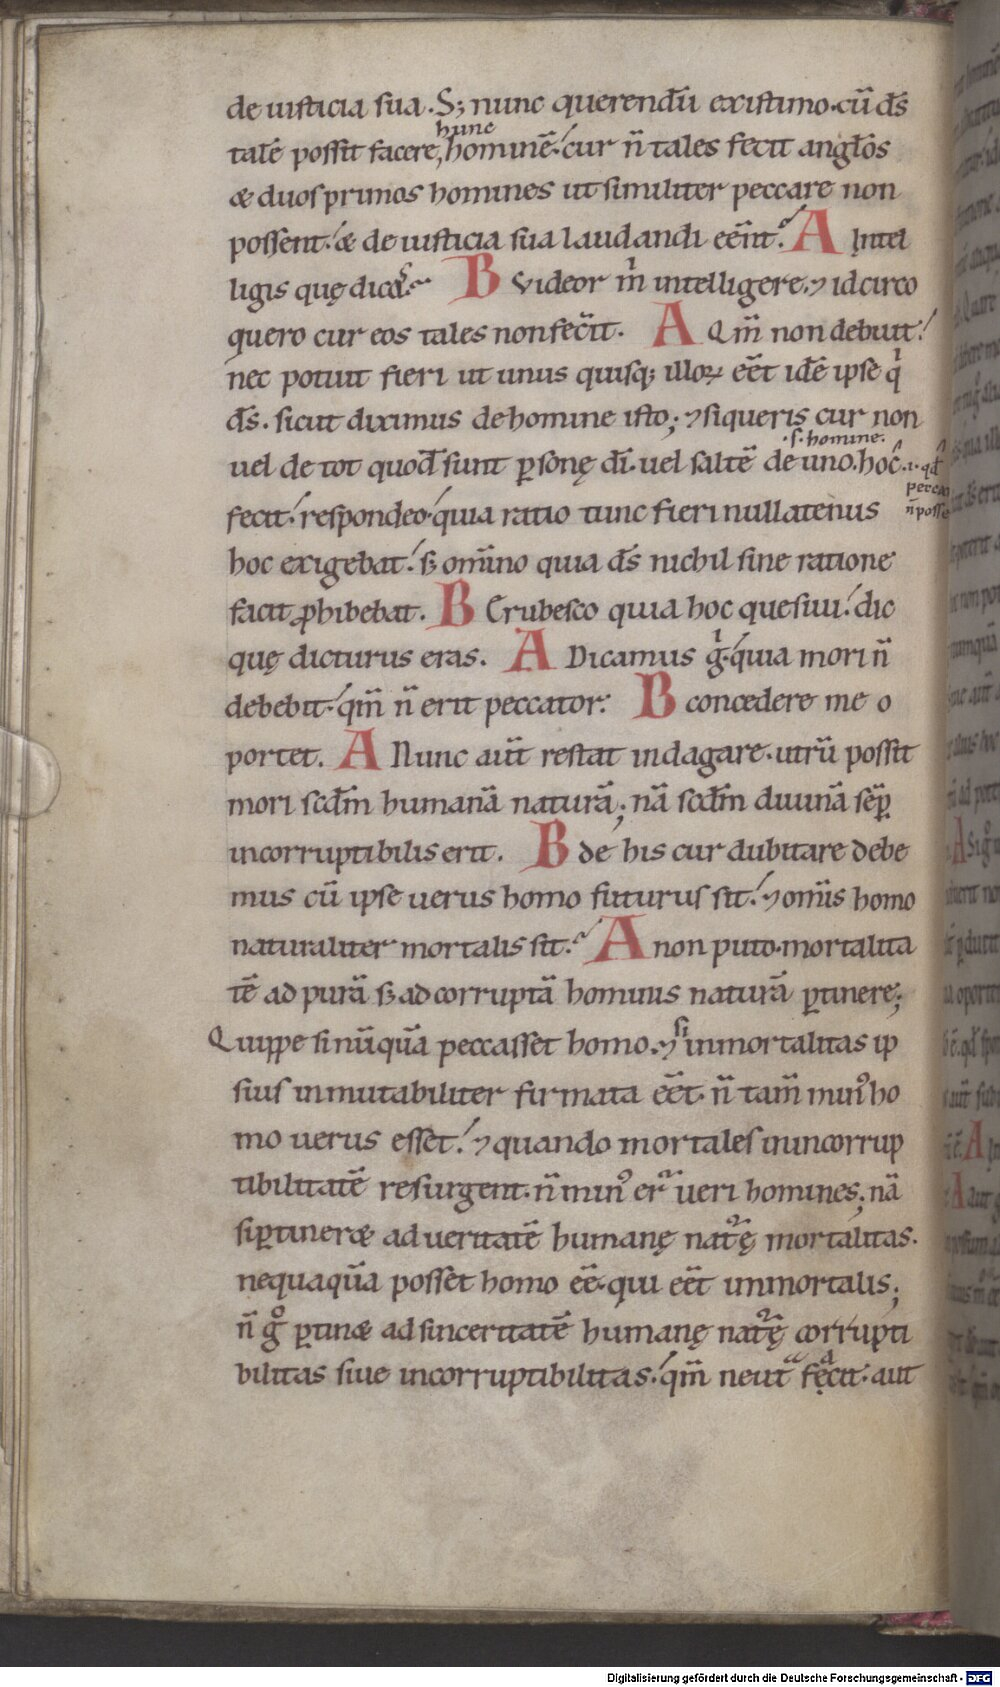 de iusticia sua. S; nunc querendū existimo. cū d̄s
hunc
talē possit facere, hominē. cur n̄ tales fecit angl̄os
æ duos primos homines ut similiter peccare non
possent. æ de iusticia sua laudandi eēnt. A Intel
ligis quę dico. B Videor m̄ intelligere. ⁊ idcirco
quero cur eos tales non fec̄it. A Qm̄ non debuit.
nec potuit fieri ut unus quisq; illoꝝ eēt idē ipse qͥ
d̄s. sicut diximus de homine isto; ⁊ si queris cur non
.s. homine.
uel de tot quod̄ sunt ꝑsonę dī. uel saltē de uno. hoc
.i. qd̄
peccare
n̄ posse
fecit. respondeo. quia ratio tunc fieri nullatenus
hoc exigebat. s; om̄ino quia d̄s nichil sine ratione
facit ꝓhibebat. B Erubesco quia hoc quesiui. dic
quę dicturus eras. A Dicamus gͥ. quia mori n̄
debebit. qm̄ n̄ erit peccator. B concedere me o
portet. A Nunc aūt restat indagare. utrū possit
mori scd̄m humanā naturā; nā scd̄m diuinā sēꝑ
incorruptibilis erit. B de his cur dubitare debe
mus cū ipse uerus homo futurus sit. ⁊ om̄is homo
naturaliter mortalis sit. A non puto. mortalita
tē ad purā s; ad corruptā hominis naturā ꝑtinere;
Quippe si nūquā peccasset homo. ⁊ si inmortalitas ip
sius inmutabiliter firmata eēt. n̄ tam̄ minꝰ ho
mo uerus esset. ⁊ quando mortales in incorrup
tibilitatē resurgent. n̄ minꝰ er̄ ueri homines; nā
si ꝑtineræ ad ueritatē humanę nat̄ę mortalitas.
nequaquā posset homo eē. qui eēt inmortalis;
n̄ gͦ ꝑtinæ ad sinceritatē humanę nat̄ę corrupti
bilitas siue incorruptibilitas. qm̄ neut̄ fęcit. aut
Digitalisierung gefördert durch die Deutsche Forschungsgemeinschaft - DFG